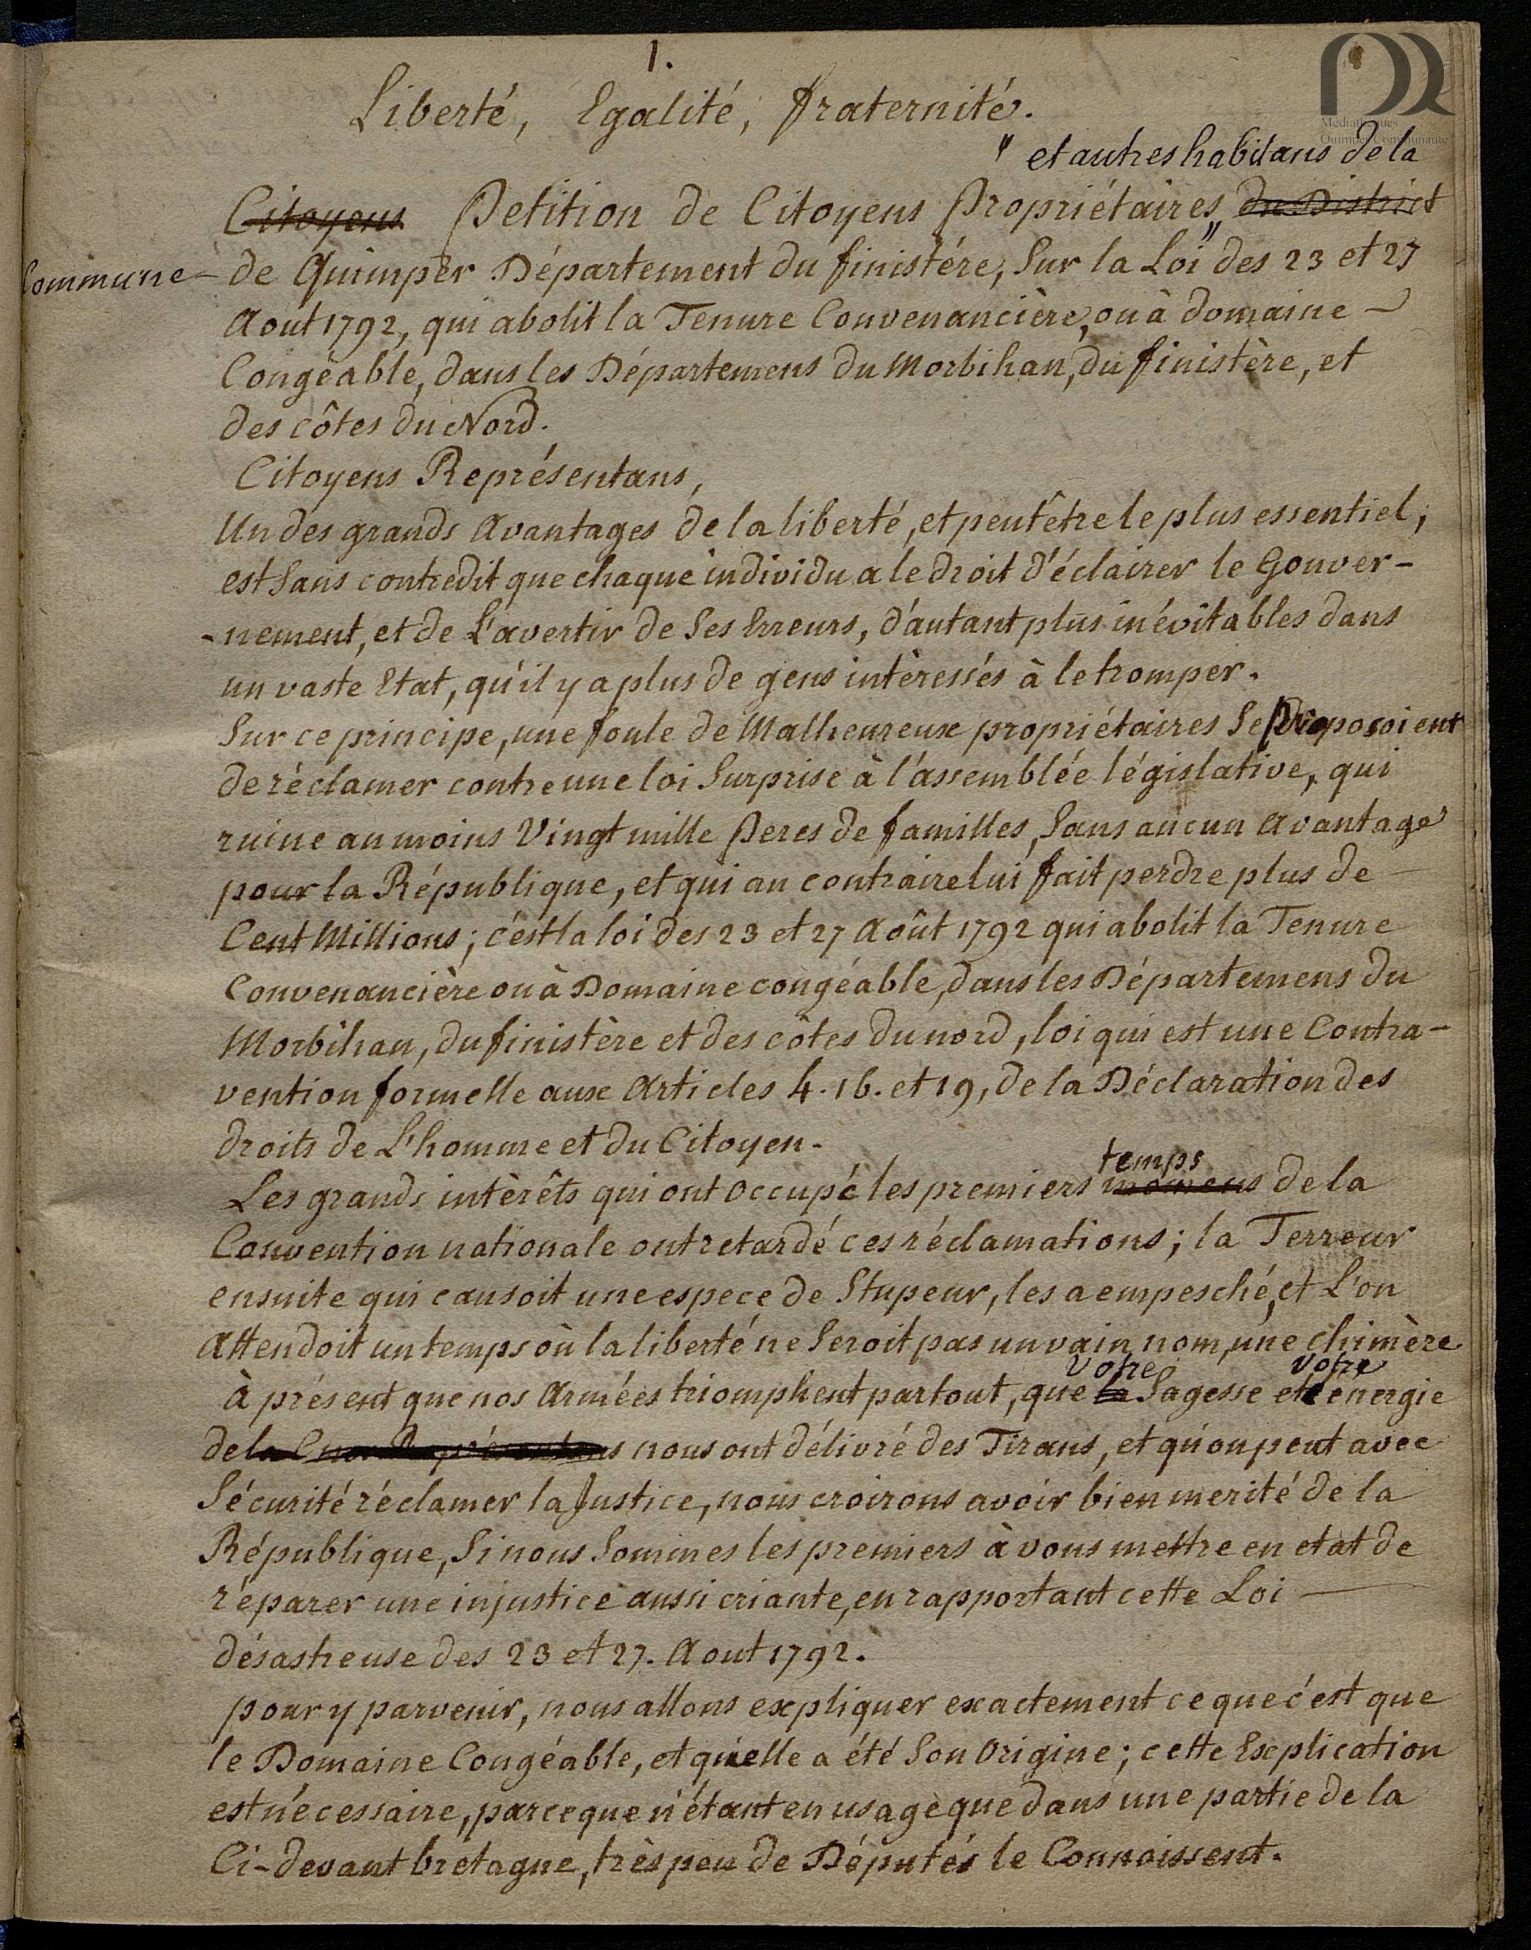 1.
Liberté, Egalité, fraternité.
" et autres habitans de la
Citoyens Petition de Citoyens Propriétaires " du District
Commune - de Quimper Département du finistére, Sur la Loi des 23 et 27
Aout 1792, qui abolit la Tenure Convenancière, ou à domaine -
Congéable, dans les Départemens du Morbihan, du finistère, et
des côtes du Nord.
Citoyens Représentans,
Un des grands Avantages de la liberté, et peut être le plus essentiel,
est Sans contredit que chaque individu a le droit d'éclairer le Gouver-
-nement, et de L'avertir de Ses Erreurs, d'autant plus inévitables dans
un vaste Etat, qu'il y a plus de gens intèressés à le tromper.
Sur ce principe, une foule de Malheureux propriétaires Se Proposoient
de réclamer contre une loi Surprise à l'assemblée législative, qui
ruine au moins Vingt mille Peres de familles, Sans aucun avantage
pour la République, et qui au contraire lui fait perdre plus de
Cent Millions; c'est la loi des 23 et 27 Août 1792 qui abolit la Tenure
Convenancière ou à Domaine congéable, dans les Départemens du
Morbihan, du finistère et des côtes du nord, loi qui est une Contra-
vention formelle aux Articles 4. 16. et 19, de la Déclaration des
droits de L'homme et du Citoyen.
temps
Les grands intèrêts qui ont occupé les premiers momens de la
Convention nationale ont retardé ces réclamations; la Terreur
ensuite qui causoit une espece de Stupeur, les a empesché, et L'on
Attendoit un temps où la liberté ne Seroit pas un vain nom, une chimère
votre votre
à présent que nos Armées triomphent partout, que la Sagesse et énergie
de la Représentans nous ont délivré des Tirans, et qu'on peut avec
Sécurité réclamer la Justice, nous croirons avoir bien merité de la
République, Si nous Sommes les premiers à vous mettre en etat de
réparer une injustice aussi criante, en rapportant cette Loi
désastreuse des 23 et 27. Aout 1792.
pour y parvenir, nous allons expliquer exactement ce que c'est que
le Domaine Congéable, et qu'elle a été Son Origine; cette Explication
est nécessaire, parceque n'étant en usage que dans une partie de la
Ci-devant bretagne, très peu de Députés le Connoissent.
Médiathèques
Quimper Communauté